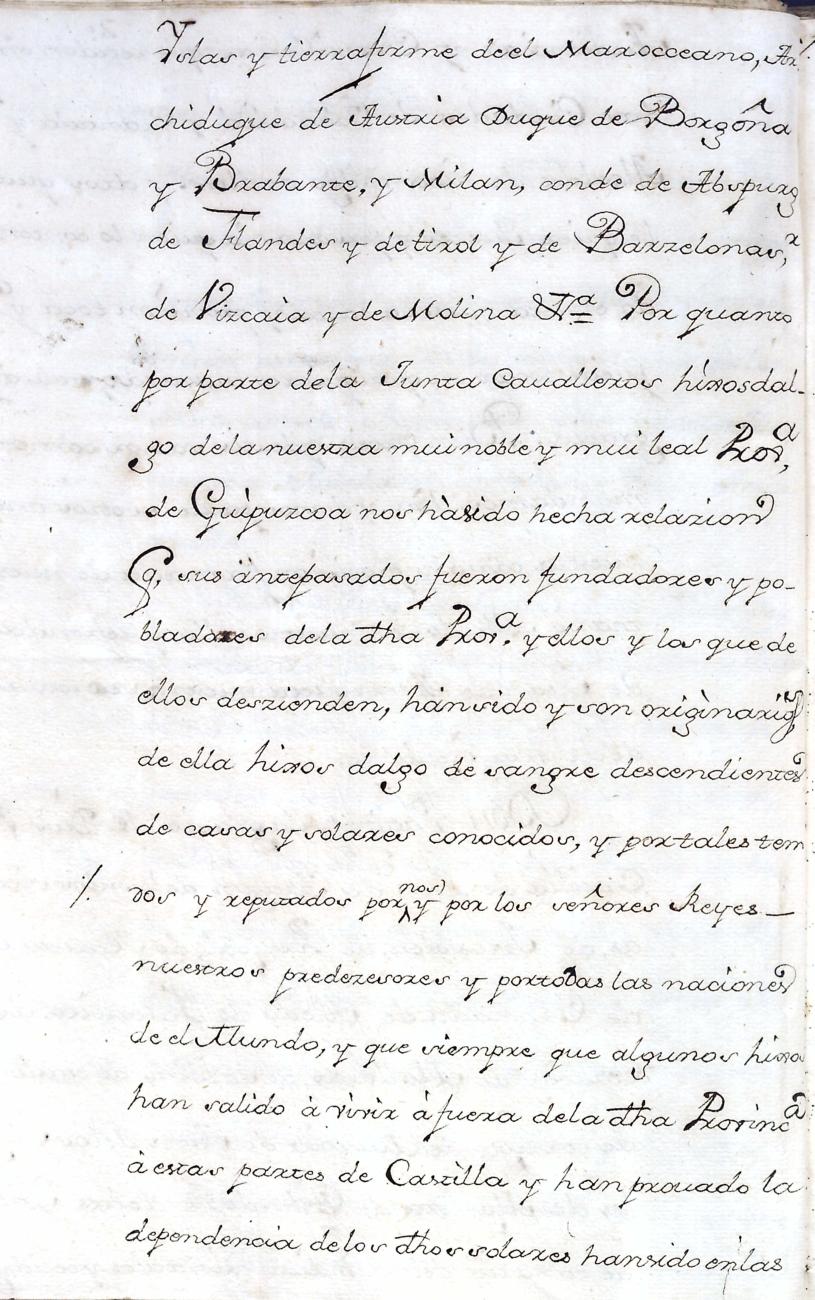 Yslas y tierrafirme deel Marocceano, Ar
chiduque de Austria Duque de Borgoña
y Brabante, y Milan, conde de Abspurg
de Flandes y de tirol y de Barzelona s,r
de Vizcaia y de Molina &a Por quanto
por parte dela Junta Cavalleros hixosdal-
go de la nuestra mui noble y mui leal Prova,
de Guipuzcoa nos hà sido hecha relazion
q, sus antepasados fueron fundadores y po-
bladores dela dha Prova. y ellos y los que de
ellos deszienden, hàn sido y son orìginarios
de ella hixos dalgo de sangre descendientes
de casas y solares conocidos, y por tales teni
/. dos y reputados por nos) y por los señores Reyes
nuestros predezesores y por todas las naciones
de el Mundo, y que siempre que algunos hixo
han salido à vivir à fuera dela dha Provinca
à estas partes de Castilla y han provado la
dependencia delos dhos solares han sido en las